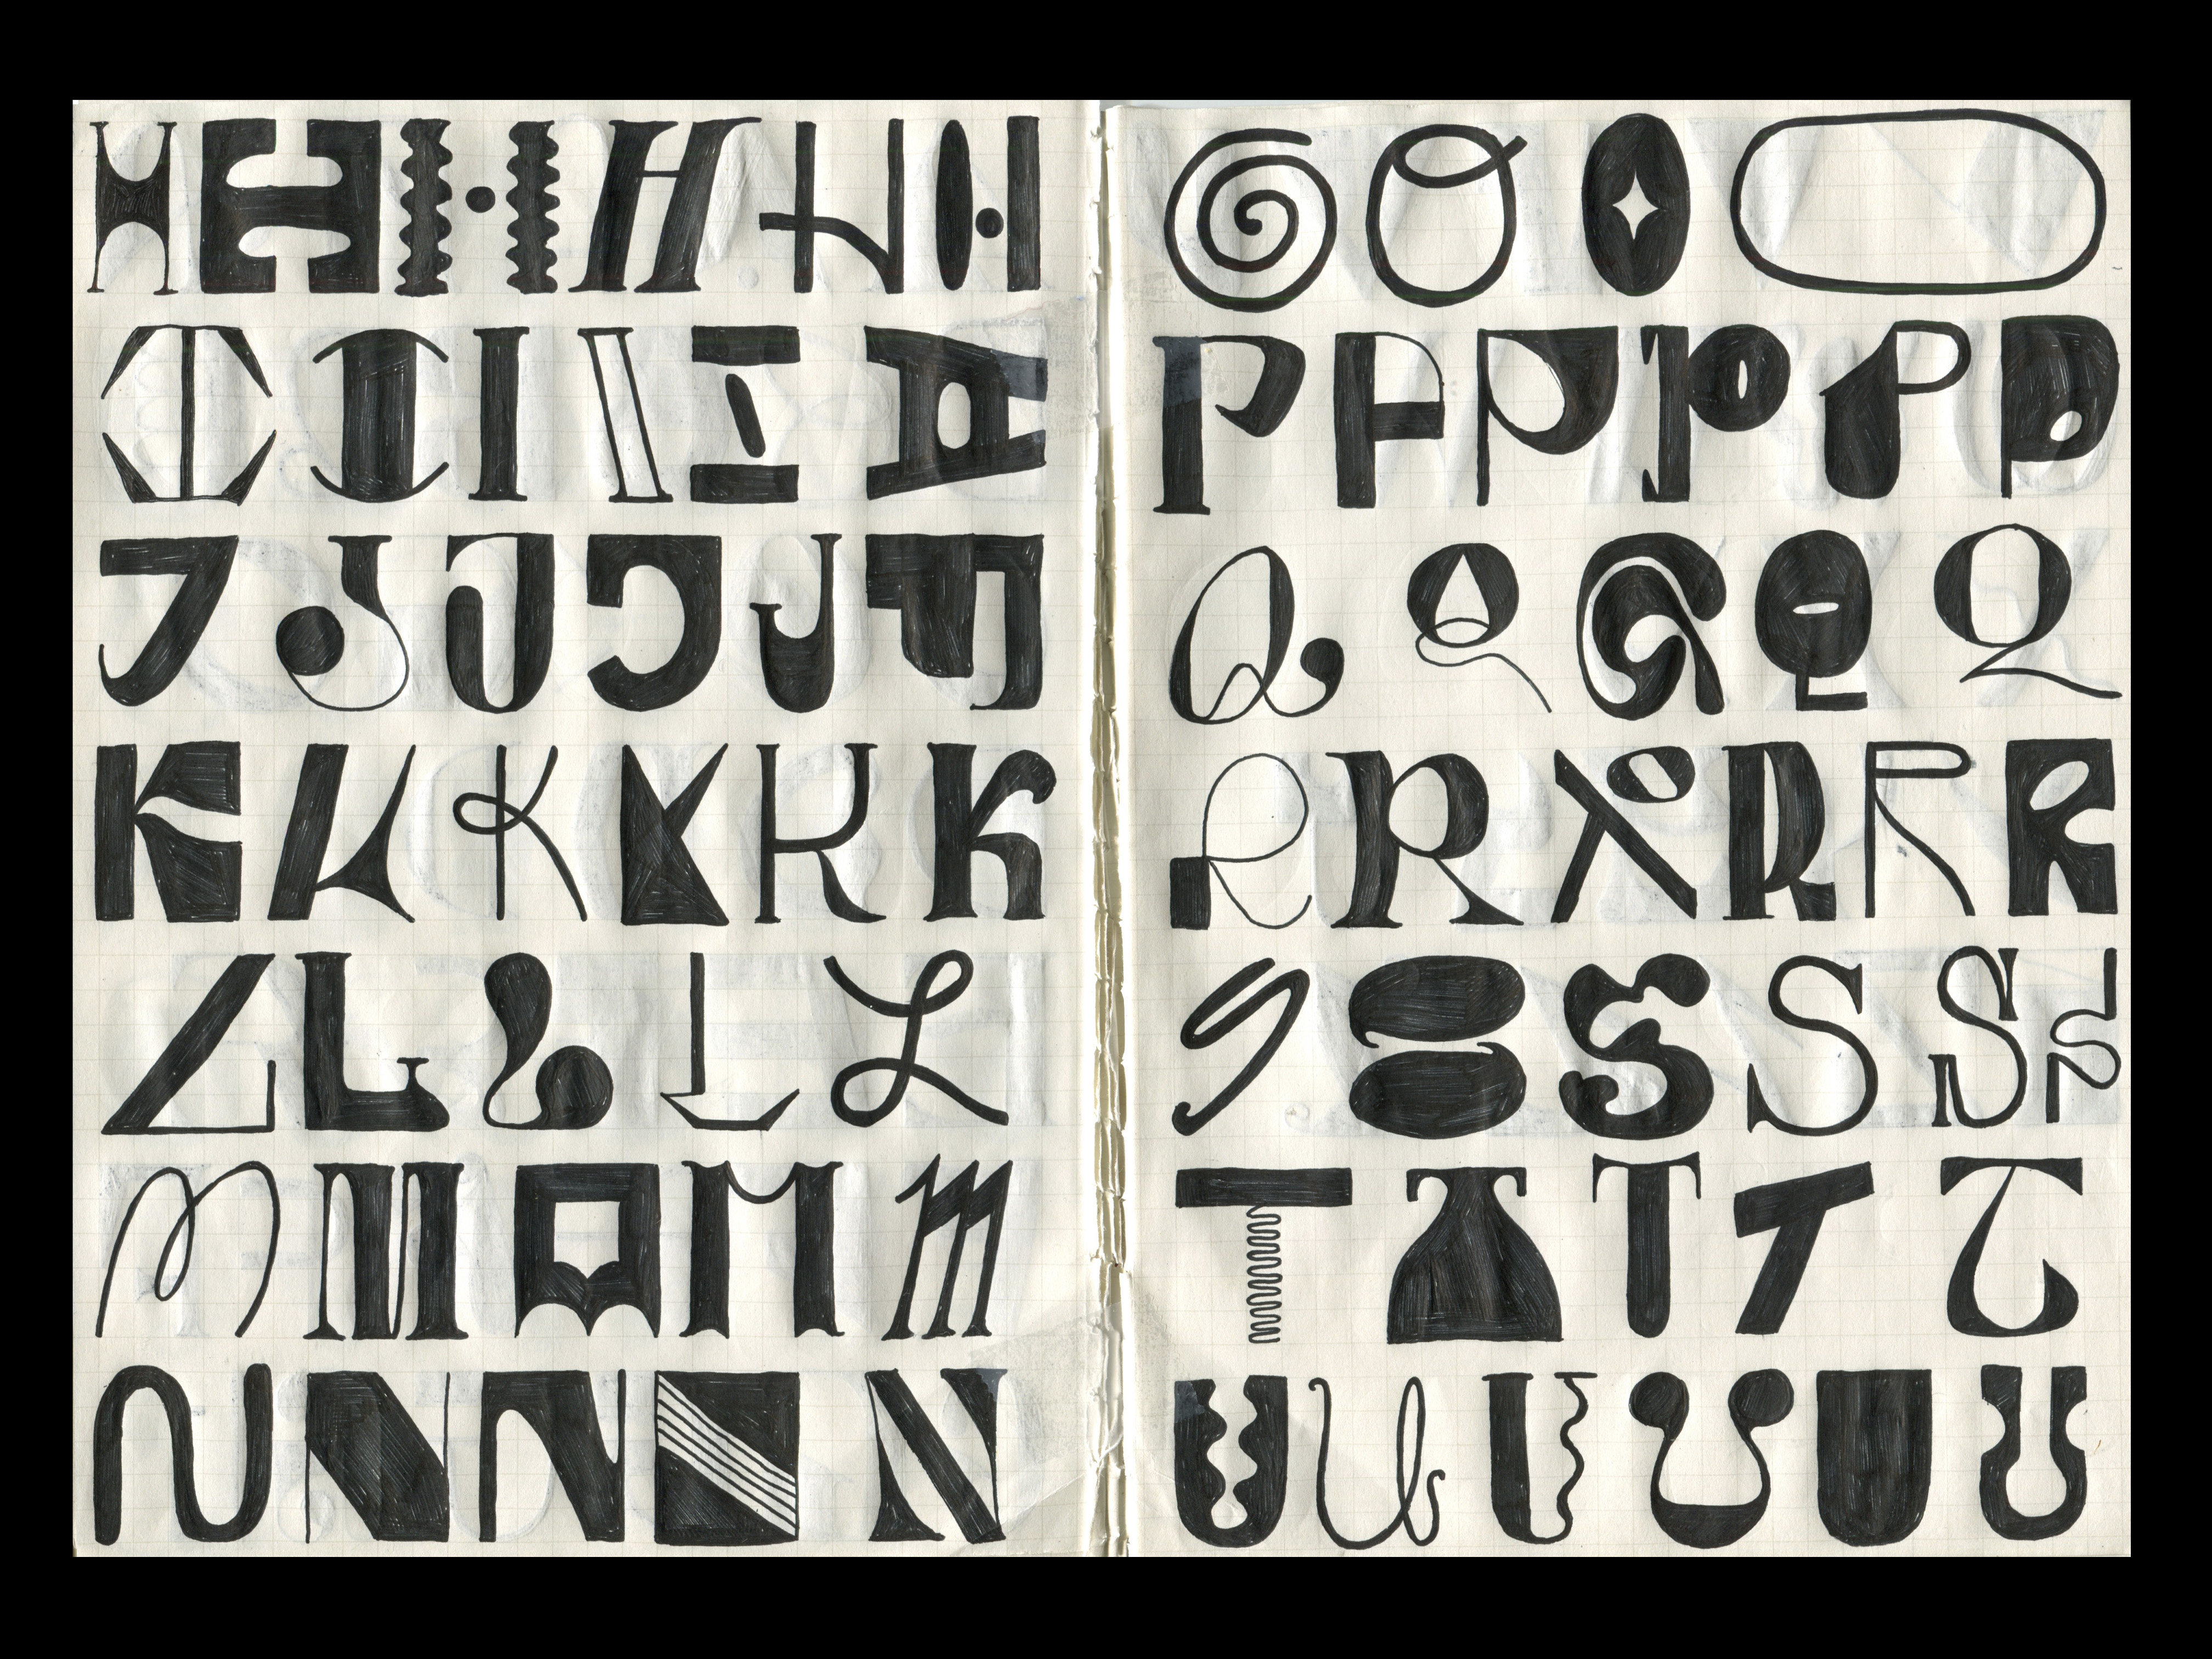 H H H H H H
I I I I I I
J J J J J J
K K K K K K
L L L L L
M M M M M
N N N N N
O O O O
P P P P P P
Q Q Q Q Q
R R R R R R
S S S S S S
T T T T T
U U U U U U